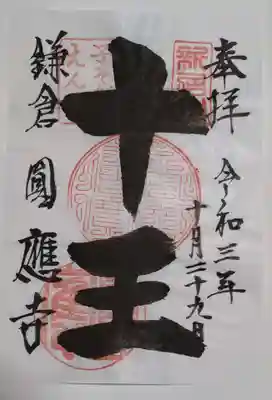 奉拝
令和三年
十月二十九日
十王
鎌倉
圓應寺